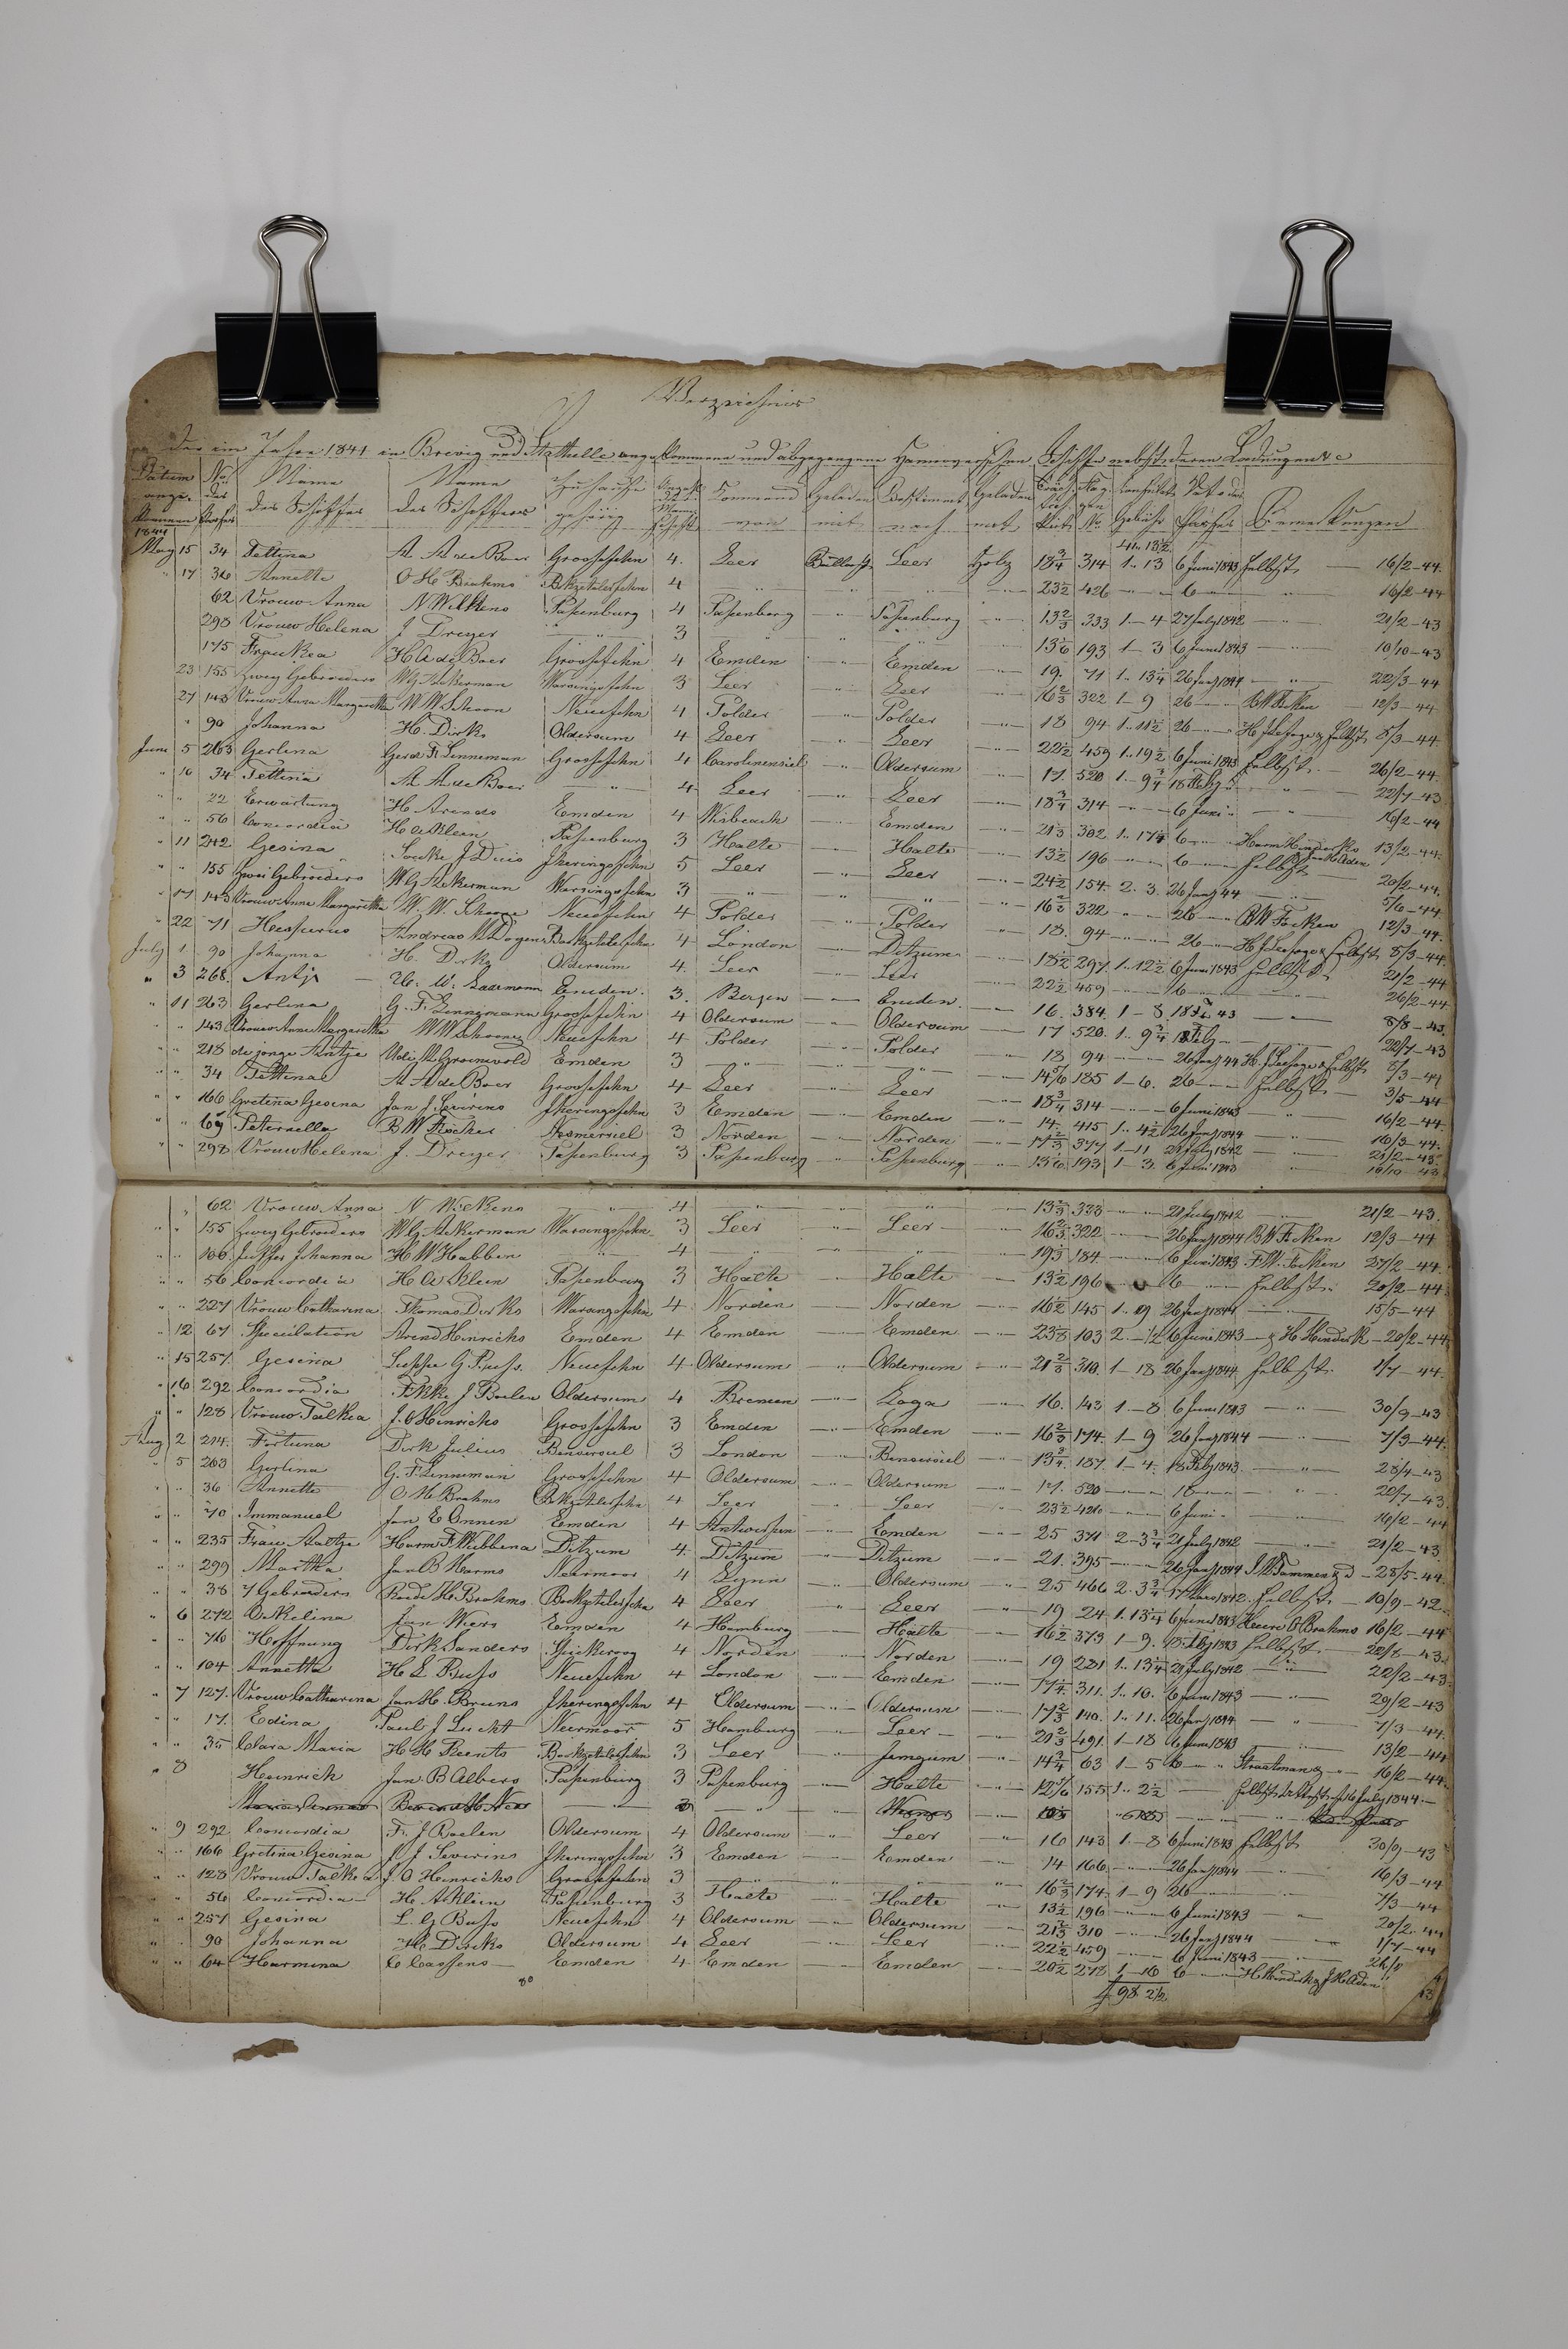 Verzeichniss
der im Jahre 1841 in Brevig und Stathelle angekommene und abgegangene Hannoverschen Schiffe nebst deren Ladungen &c
Datum ange- kommen No. des Passes Name des Schiffes Name des Schiffers zu Hause gehörig Kommend von Geladen mit Bestimmt nach Geladen mit Flag. No. Gebühr Datum des Passes Bemerkungen
1841
May 15 34 Tettina A. A. de Boer Groosefehn 4. Leer Ballast Leer Holz 18 3/4 314 1.. 13 6 Juni 1843 selbst — 16/2-44.
" 17 36 Annette O H Brahms Bkzetelerfehn 4 " —"— " —"— 23 1/2 426 —"— 6 —"— " 16/2-44
62 Vrouw Anna N Wilkens Papenburg 4 Papenburg —"— Papenburg —"— 13 2/3 333 1-4 27 July 1842 —"— 21/2-43
298 Vrouw Helena J Dreyer —"— 3 " " " 193 1-3 6 Juni 1843 —"— 10/10-43
175 Fraukea H A de Boer Groosefehn 4 Emden —"— Emden —"— 19. 71 1.. 13 1/4 26 Janj 1844 —"— 22/3-44
23 155 Zwey Gebroeders W G Ackerman Warsingsfehn 3 Leer —"— Leer —"— 16 2/3 322 1-9 26 —"— B W Feken 12/3-44
27 143 Vrouw Anna Margaretha W W Schoon Neuefehn 4 Polder —"— Polder —"— 18 94 1.. 11 1/2 26 —"— selbst 8/3-44
" 90 Johanna H. Dirks Oldersum 4 Leer —"— Leer —"— 22 1/2 459 1.. 19 1/2 6 Juni 1843 selbst — 26/2-44
June 5 263 Gerlina Gerd F. Linneman Groosefehn 4 Carolinensiel —"— Oldersum —"— 17. 520 1-9 3/4 18 " 22/7-43
" 10 34 Tettina A. A. de Boer —"— 4 Leer —"— Leer —"— 18 3/4 314 —"— 6 Juni " " 16/2-44
" " 22 Erwartung H Arends Emden 4 Wisbeach —"— Emden —"— 302 6 —"— Harm Hinderks 13/2-44
" " 56 Concordia H A Kleen Papenburg 3 Halte —"— Halte —"— 13 1/2 196 —"— 6 —"— selbst 20/2-44
" 11 242 Gesina Jheringsfehn 5 Leer —"— Leer —"— 24 1/2 154 2. 3. 26 Janj 44 5/6-44
" " 155 Zwei Gebroeders W G Ackerman Warsingsfehn 3 —"— " —"— 16 2/3 322 " 26 —"— B W Feken 12/3-44
" 17 143 Vrouw Anna Margaretha W. W. Schoon Neuefehn 4 Polder —"— Polder —"— 18. 94 —"— 26 —"— selbst 8/3-44
" 22 71 Hesperus Andreas Bockzetelerfehn 4 London —"— Ditzum —"— 18 1/2 297 1.. 12 1/2 6 Juni 1843 selbst 21/2-44
July 1 90 Johanna H. Dirks Oldersum 4. Leer —"— Leer —"— 22 1/2 459 —"— 6 —"— " 26/2-44
" 3 268. Antje Emden. 3. Bergen —"— Emden. —"— 16. 384. 1-8 43 —"— 8/8-43
" 11 263 Gerlina G. F. Linneman Groosefehn 4 Oldersum —"— Oldersum —"— 17 520. 1-9 3/4 22/7-43
" " 143 Vrouw Anna Margaretha W W Schoon Neuefehn 4 Polder —"— Polder —"— 18 94 —"— 26 Janj 44 selbst 8/3-44
" " 218 de jonge Antje Groenewold Emden 3 —"— —"— —"— 14 5/6 185 1-6. 26 —"— selbst 3/5-44
" " 34 Tettina A. A. de Boer Groosefehn 4 Leer —"— Leer —"— 18 3/4 314 —"— 6 Juni 1843 " 16/2-44
" " 166 Gretina Gesina Jan J. Severins Jherings​fehn 3 Emden —"— Emden —"— 14. 415 1.. 4 1/2 26 Janj 1844 —"— 16/3-44
" " Peternella B W Norden —"— Norden —"— 17 2/3 377 1-11 27 July 1842 —"— 21/2-43
" " 298 Vrouw Helena J. Dreyer Papenburg 3 Papenburg —"— Papenburg —"— 193 1-3. 6 Juni 1843 " 10/10-43
" 62 Vrouw Anna N Wilkens —"— 4 " —"— " —"— 13 2/3 333 —"— 27 July 1842 —"— 21/2-43.
" " 155 Zwey Gebroeders W G Ackerman Warsingsfehn 3 Leer —"— Leer —"— 16 2/3 322 —"— 26 Janj 1844 B W Feken 12/3-44
" " 106 Juffer Johanna H W Habben —"— 4 " —"— " —"— 19 1/3 184 —"— 6 Juni 1843 F W Feeken 27/2-44
" " 56 Concordia H A Kleen Papenburg 3 Halte —"— Halte —"— 13 1/2 196 —"— 6 —"— selbst 20/2-44
" " 227 Vrouw Catharina Thomas Dirks Warsingsfehn 4 Norden —"— Norden —"— 16 1/2 145 1..9 26 Janj 1844 —"— 15/5-44
" 12 67 Speculation Arend Hinrichs Emden 4 Emden —"— Emden —"— 23 5/8 103 2 - 1/2 6 Juni 1843 — & H Hinderk - 20/2-44
" 15 257 Gesina Luppe G Buss. Neuefehn 4 Oldersum —"— Oldersum —"— 21 2/3 310. 1-18 26 Janj 1844 selbst 1/7-44
" 16 292 Concordia Fokke J Boelen Oldersum 4 Bremen —"— Loga —"— 16. 143 1-8 6 Juni 1843 —"— 30/9-43
" " 128 Vrouw Talkea J. O Hinrichs Groosefehn 3 Emden —"— Emden —"— 16 2/3 174. 1-9 26 Janj 1844 —"— 7/3-44
Aug 2 214. Fortuna Dirk Julius Bensersiel 3 London —"— Bensersiel —"— 13 3/4. 187. 1-4. 18 Feby 1843 —"— 28/4-43
" 5 263 Gerlina G. F. Linneman Groosefehn 4 Oldersum —"— Oldersum —"— 17. 520 —"— 18 —"— " 22/7-43
" " 36 Annette O H Brahms Bkzetelerfehn 4 Leer —"— Leer —"— 23 1/2 426 —"— 6 Juni " " 16/2-44
" " 70 Immanuel Jan E Onnen Emden 4 Antwerpen —"— Emden —"— 25 371 2-3 3/4 21 July 1842 —"— 21/2-43
" " 235 Frau Aaltje Harm F Wübbena Ditzum 4. Ditzum —"— Ditzum —"— 21. 395 —"— 26 Janj 1844 - 28/5-44
" " 299 Martha Jan B Harms Neermoor 4 Lynn —"— Oldersum —"— 25 466 2. 3 3/4 17 Mars 1842 selbst 10/9-42
" " 38 7 Gebroeders Roede H Brahms Bockzetelerfehn 4 Leer —"— Leer —"— 19 24 1. 13 1/4 6 Juni 1843 Heere O Brahms 16/2-44
" 6 272 Jan Wiers Emden 4 Hamburg —"— Halte —"— 16 1/2 373 1-9. 18 Feby 1843 selbst 22/8-43
" " 76 Hoffnung Dirk Sanders Spiekeroog 4 Norden —"— Norden —"— 19 221 1.. 13 1/4 27 July 1842 —"— 22/2-43
" " 104 Annetta H E Buss Neuefehn 4 London —"— Emden —"— 311. 1.. 10. 6 Juni 1843 —"— 29/2-43
" 7 127. Vrouw Catharina Jan H. Bruns Jheringsfehn 4 Oldersum —"— Oldersum —"— 17 2/3 140. 1.. 11. 26 Janj 1844 " 7/3-44
" " 17. Edina Paul J Lucht Neermoor 5 Hamburg —"— Leer —"— 20 2/3 491. 1-18 6 Juni 1843 —"— 13/2-44
" " 35 Clara Maria H H Reents Bockzetelerfehn 3 Leer —"— Jemgum —"— 14 3/4 63 1-5 6 —"— Straatman & —"— 16/2-44
" 8 Heinrich Jan. B Albers Papenburg 3 Papenburg —"— Halte —"— 12 5/6 155 1.. 2 1/2 selbst 16 July 1844.
—"— —"— Weener —"—
" 9 292 Concordia F. J Boelen Oldersum 4 Oldersum —"— Leer —"— 16 143 1-8 6 Juni 1843 selbst 30/9-43
" " 166 Gretina Gesina J J Severins Jheringsfehn 3 Emden —"— Emden —"— 14 166 —"— 26 Janj 1844 —"— 16/3-44
" " 128 Vrouw Talkea J O Hinrichs Groosefehn 3 —"— " —"— 16 2/3 174 1-9 26 —"— 7/3-44
" " 56 Concordia H. A Kleen Papenburg 3 Halte —"— Halte —"— 13 1/2 196 —"— 6 Juni 1843 " 20/2-44
" " 257 Gesina L. G Buss Neuefehn 4 Oldersum —"— Oldersum —"— 21 2/3 310 —"— 26 Janj 1844 " 1/7-44
" " 90 Johanna H Dircks Oldersum 4 Leer —"— Leer —"— 22 1/2 459 —"— 6 Juni 1843 —"— 26/2
" " 64 Harmina C Cassens Emden 4 Emden —"— Emden —"— 20 1/2 278 1-16 6 —"— H Hinderk & J H Aden
98 2 1/2